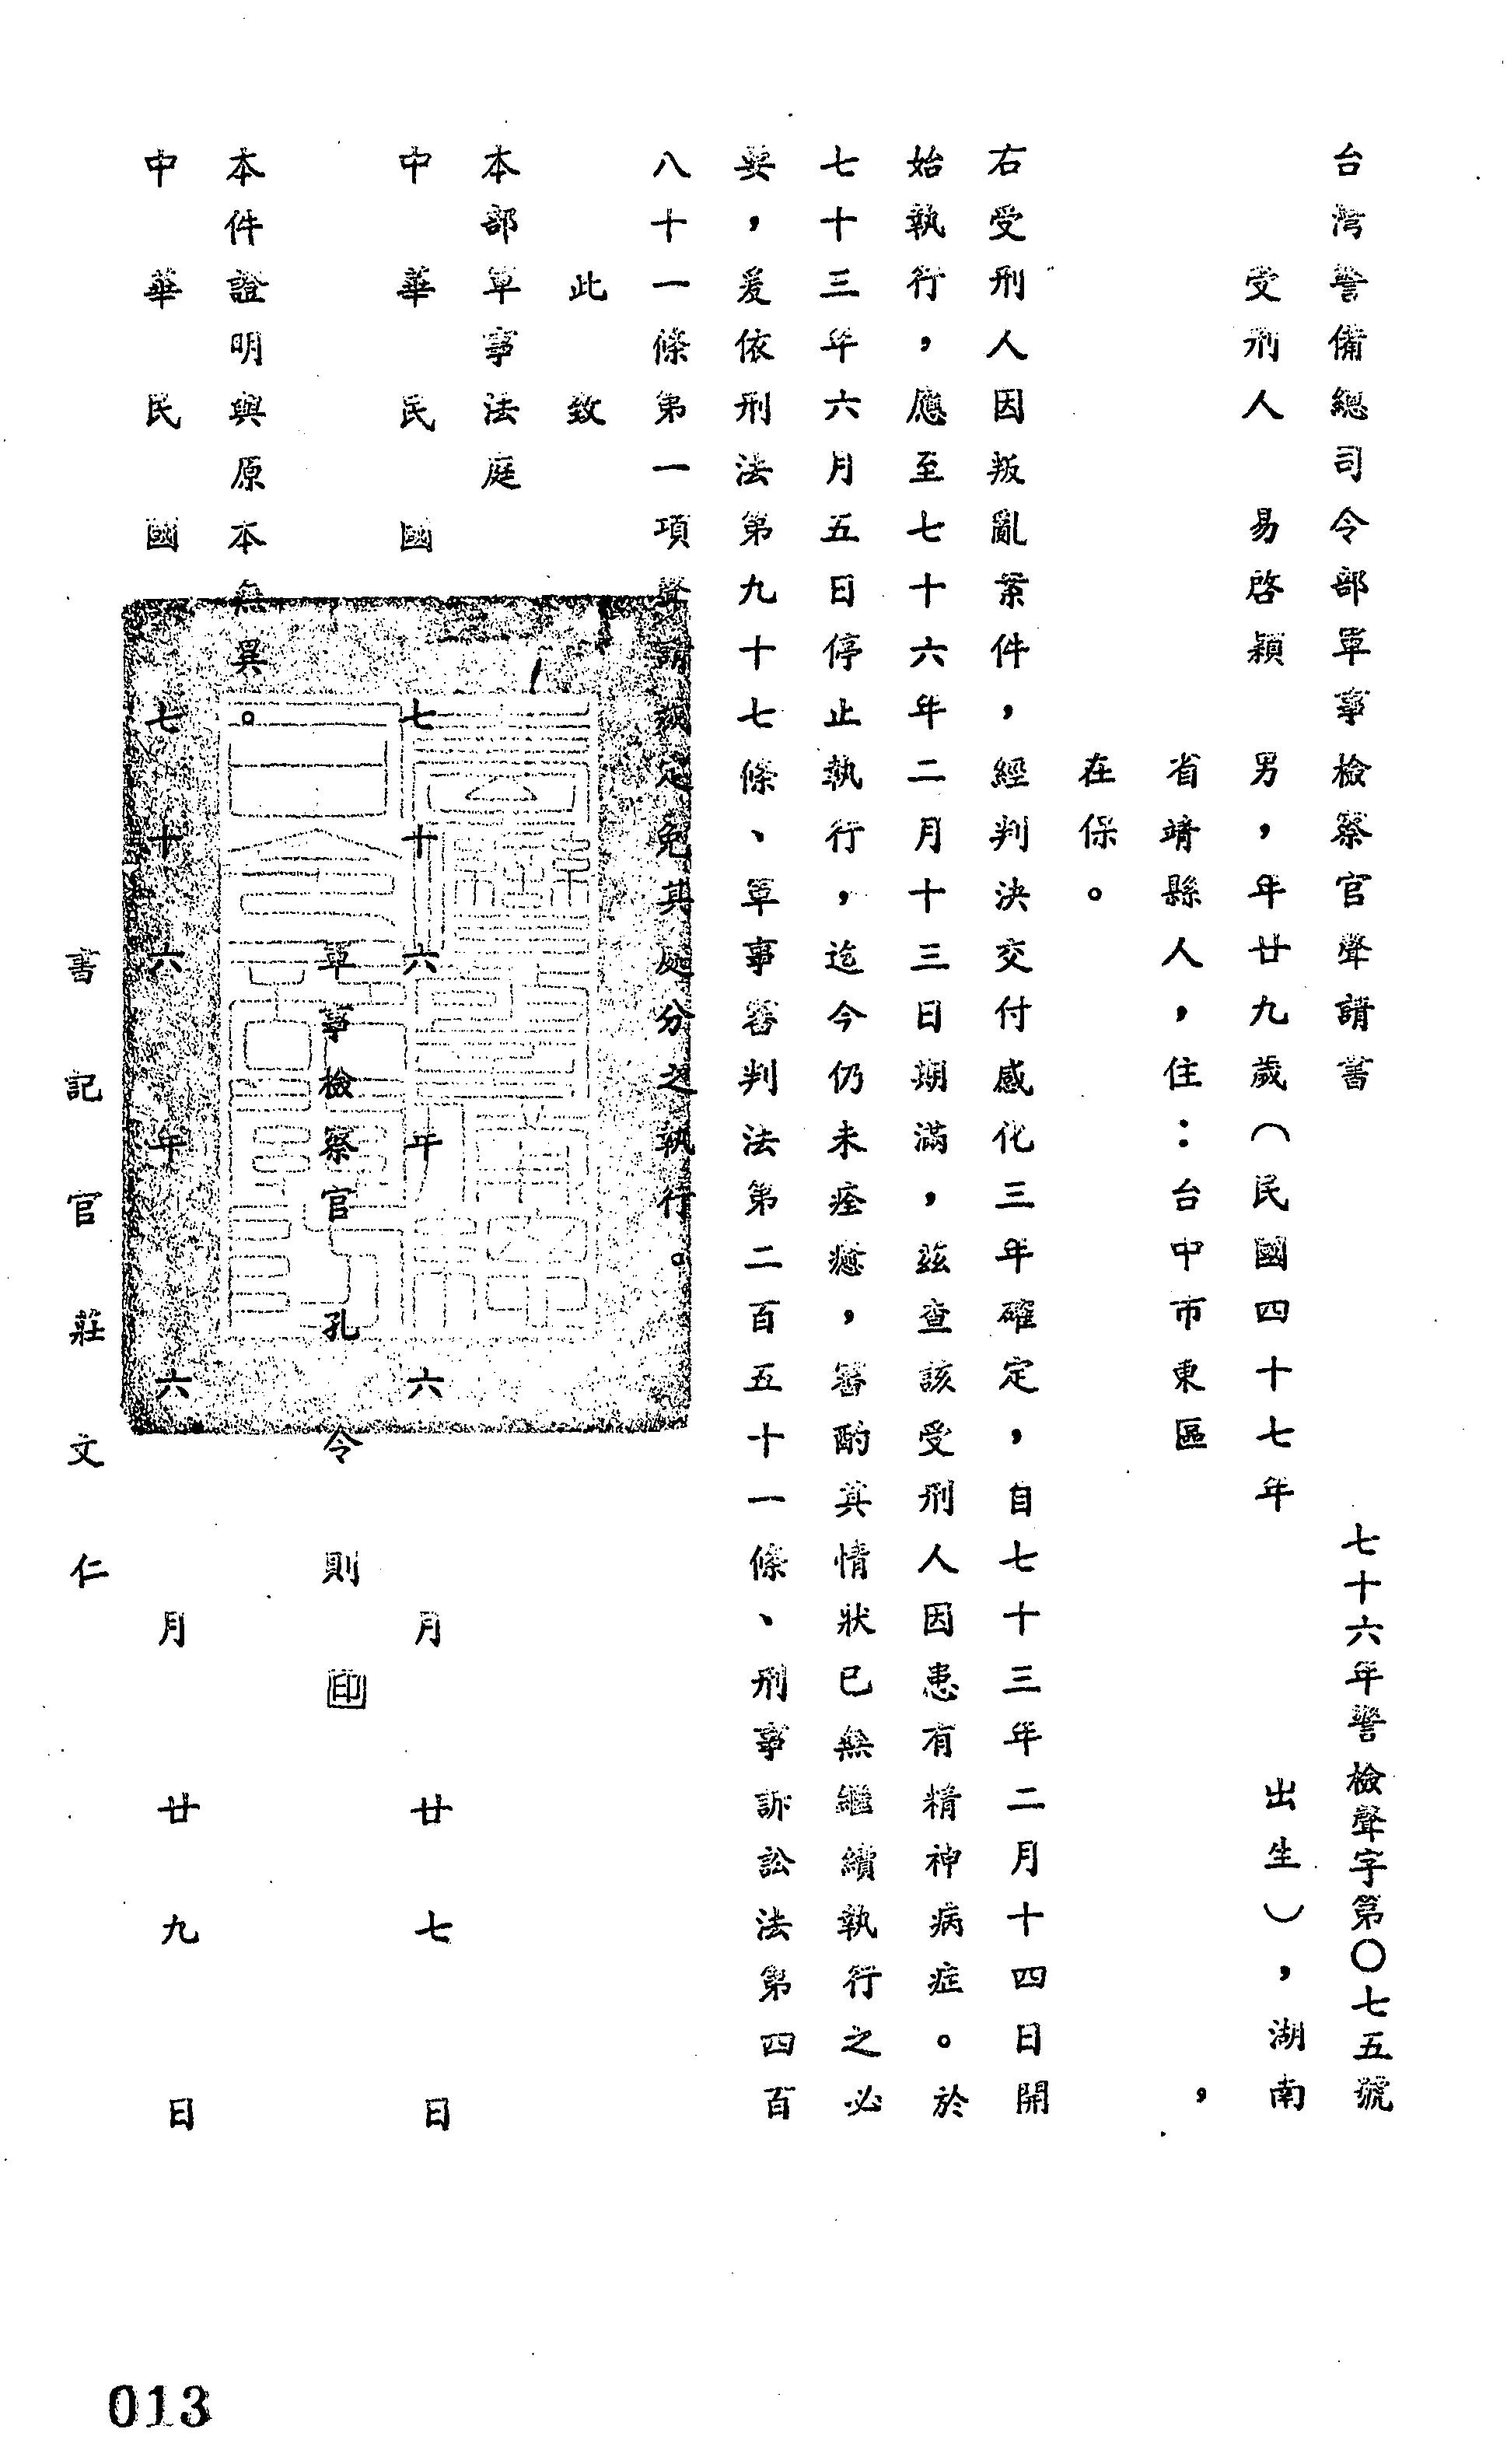 台灣警備總司令部軍事檢察官聲請書
七十六年警檢聲字第〇七五號
受刑人 易啓穎 男，年廿九歲（民國四十七年 出生），湖南
省靖縣人，住：台中市東區 ，
在保。
右受刑人因叛亂案件，經判決交付感化三年確定，自七十三年二月十四日開
始執行，應至七十六年二月十三日期滿，茲查該受刑人因患有精神病症。於
七十三年六月五日停止執行，迄今仍未痊癒，審酌其情狀已無繼續執行之必
要，爰依刑法第九十七條、軍事審判法第二百五十一條、刑事訴訟法第四百
八十一條第一項聲請裁定免其處分之執行。
此致
本部軍事法庭
中華民國七十六年六月廿七日
軍事檢察官 孔令則 印
本件證明與原本無異。
中華民國七十六年六月廿九日
書記官 莊文仁
013